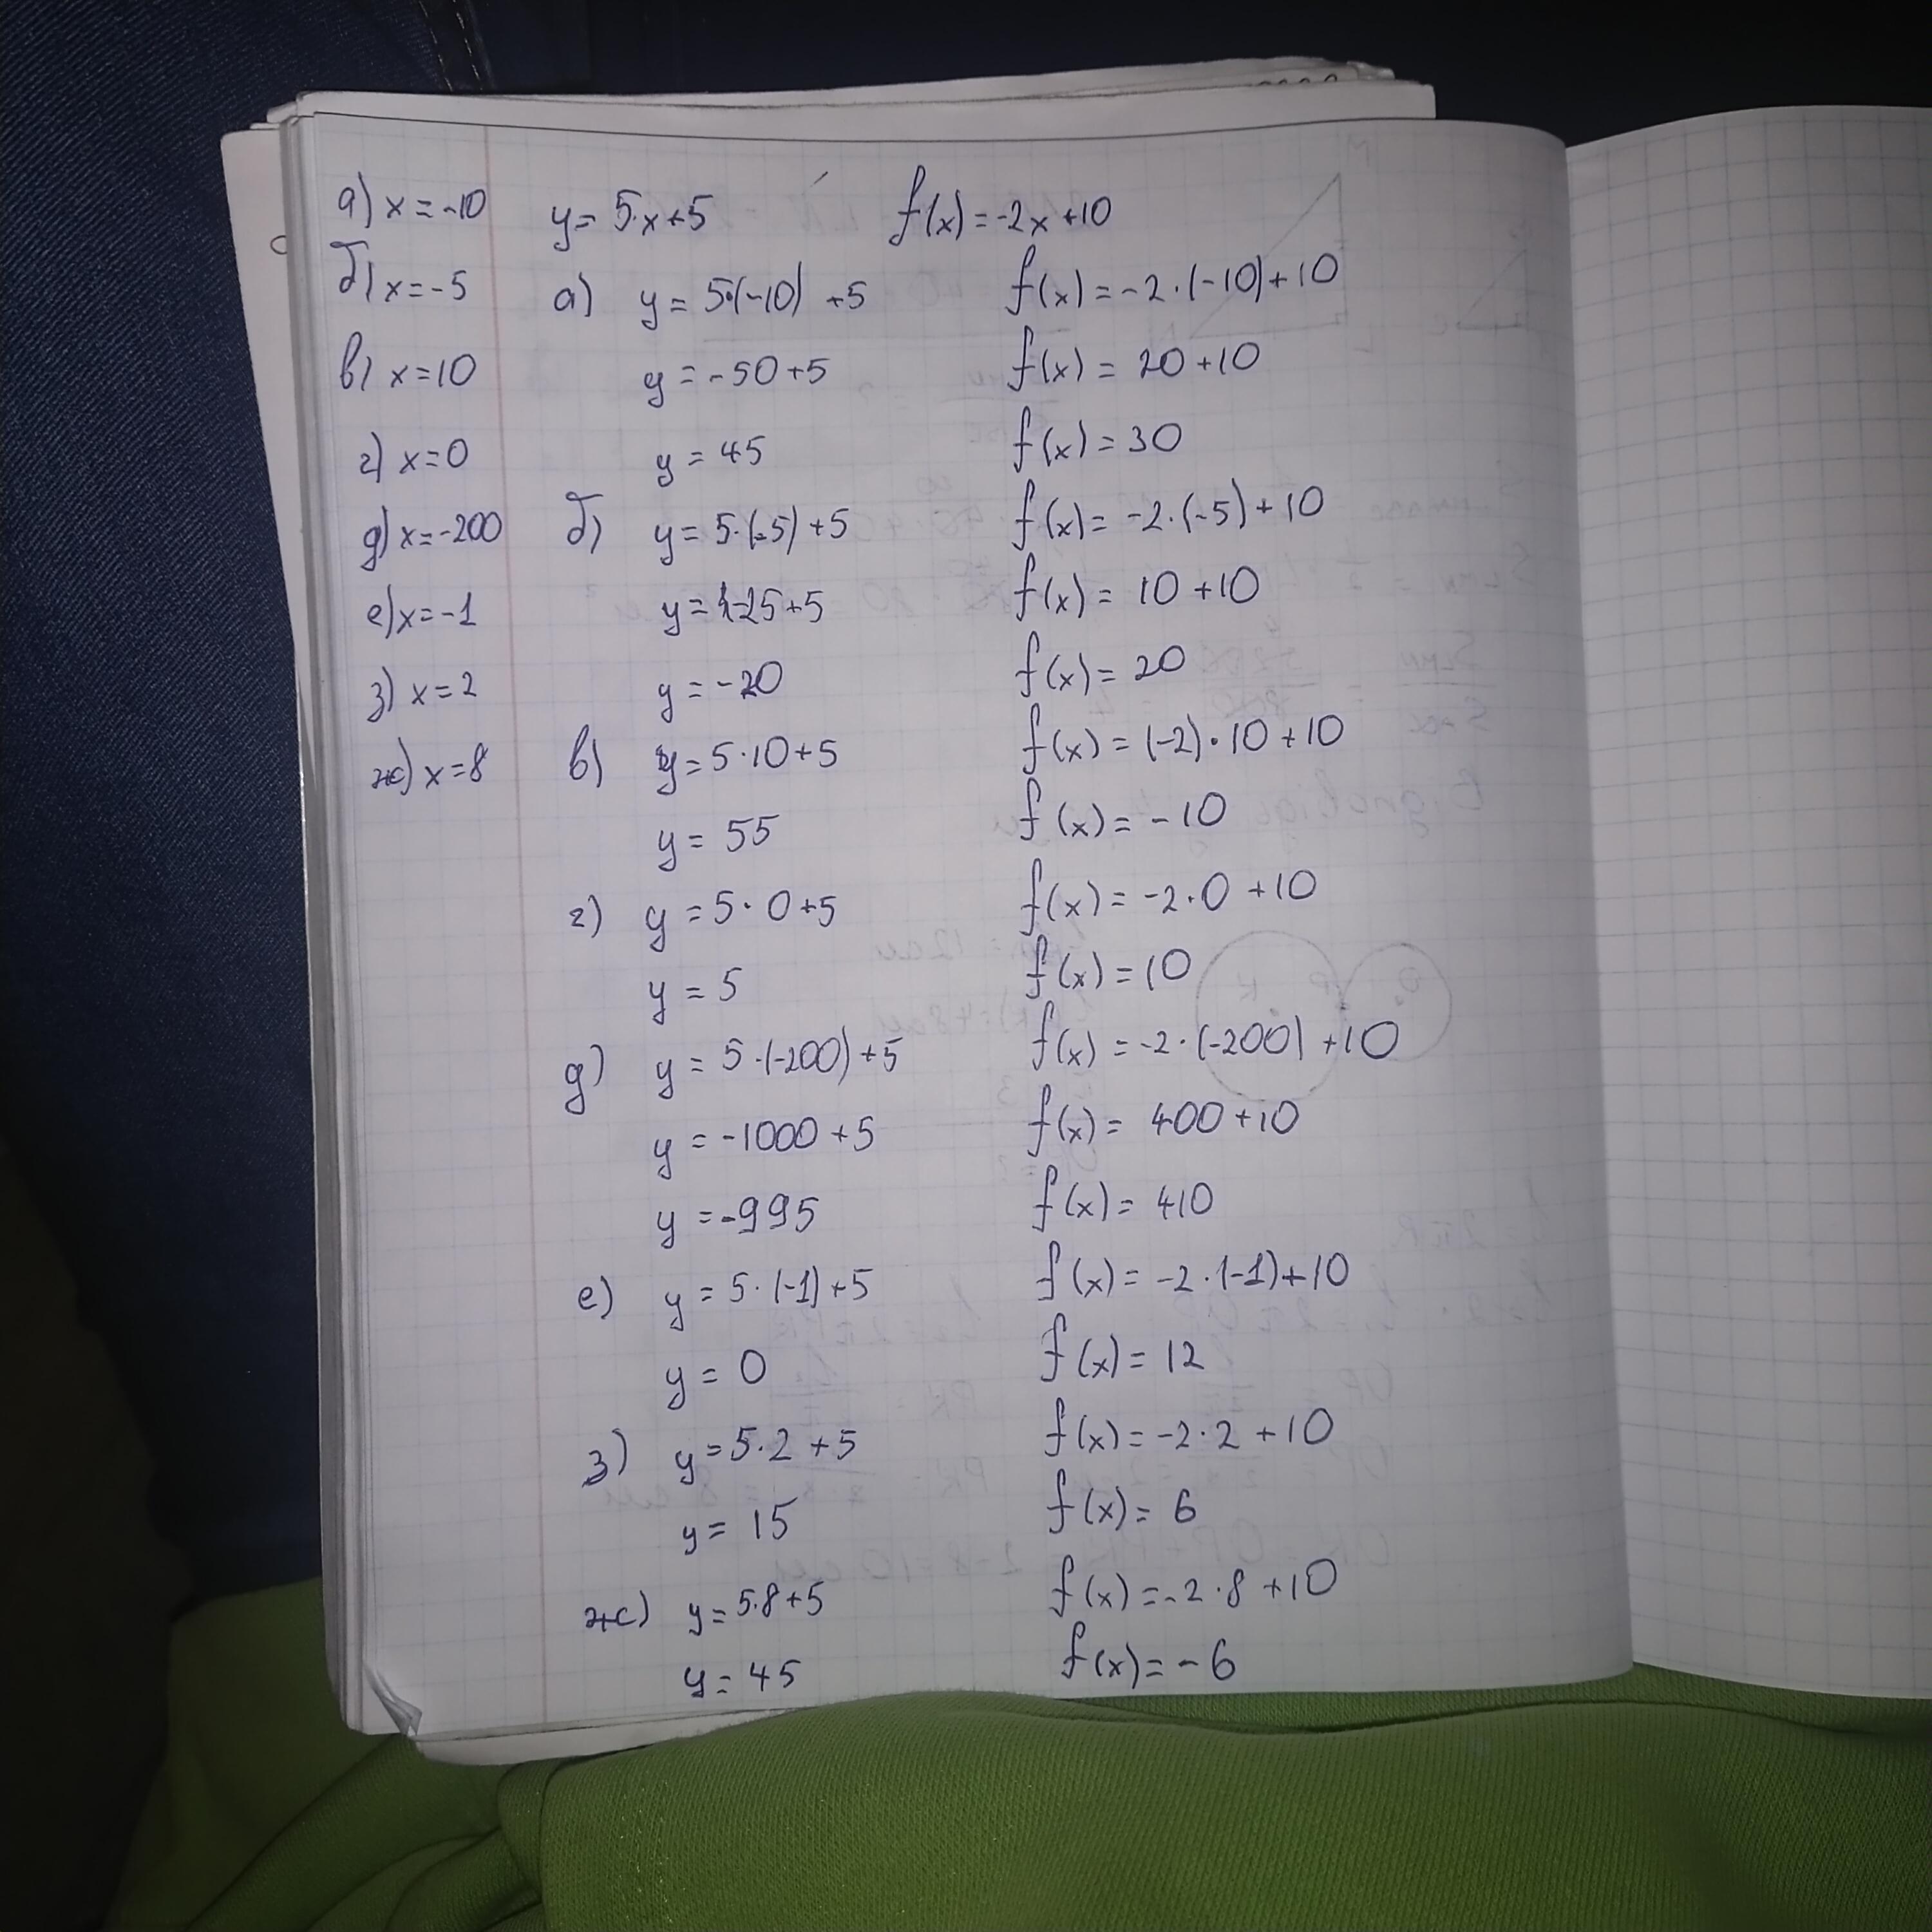 а) x=-10 y=5·x+5 f(x)=-2x+10
б) x=-5 а) y=5·(-10)+5 f(x)=-2·(-10)+10
в) x=10 y=-50+5 f(x)=20+10
г) x=0 y=45 f(x)=30
д) x=-200 б) y=5·(-5)+5 f(x)=-2·(-5)+10
е) x=-1 y=-25+5 f(x)=10+10
з) x=2 y=-20 f(x)=20
ж) x=8 в) y=5·10+5 f(x)=(-2)·10+10
y=55 f(x)=-10
г) y=5·0+5 f(x)=-2·0+10
y=5 f(x)=10
д) y=5·(-200)+5 f(x)=-2·(-200)+10
y=-1000+5 f(x)=400+10
y=-995 f(x)=410
е) y=5·(-1)+5 f(x)=-2·(-1)+10
y=0 f(x)=12
з) y=5·2+5 f(x)=-2·2+10
y=15 f(x)=6
ж) y=5·8+5 f(x)=-2·8+10
y=45 f(x)=-6